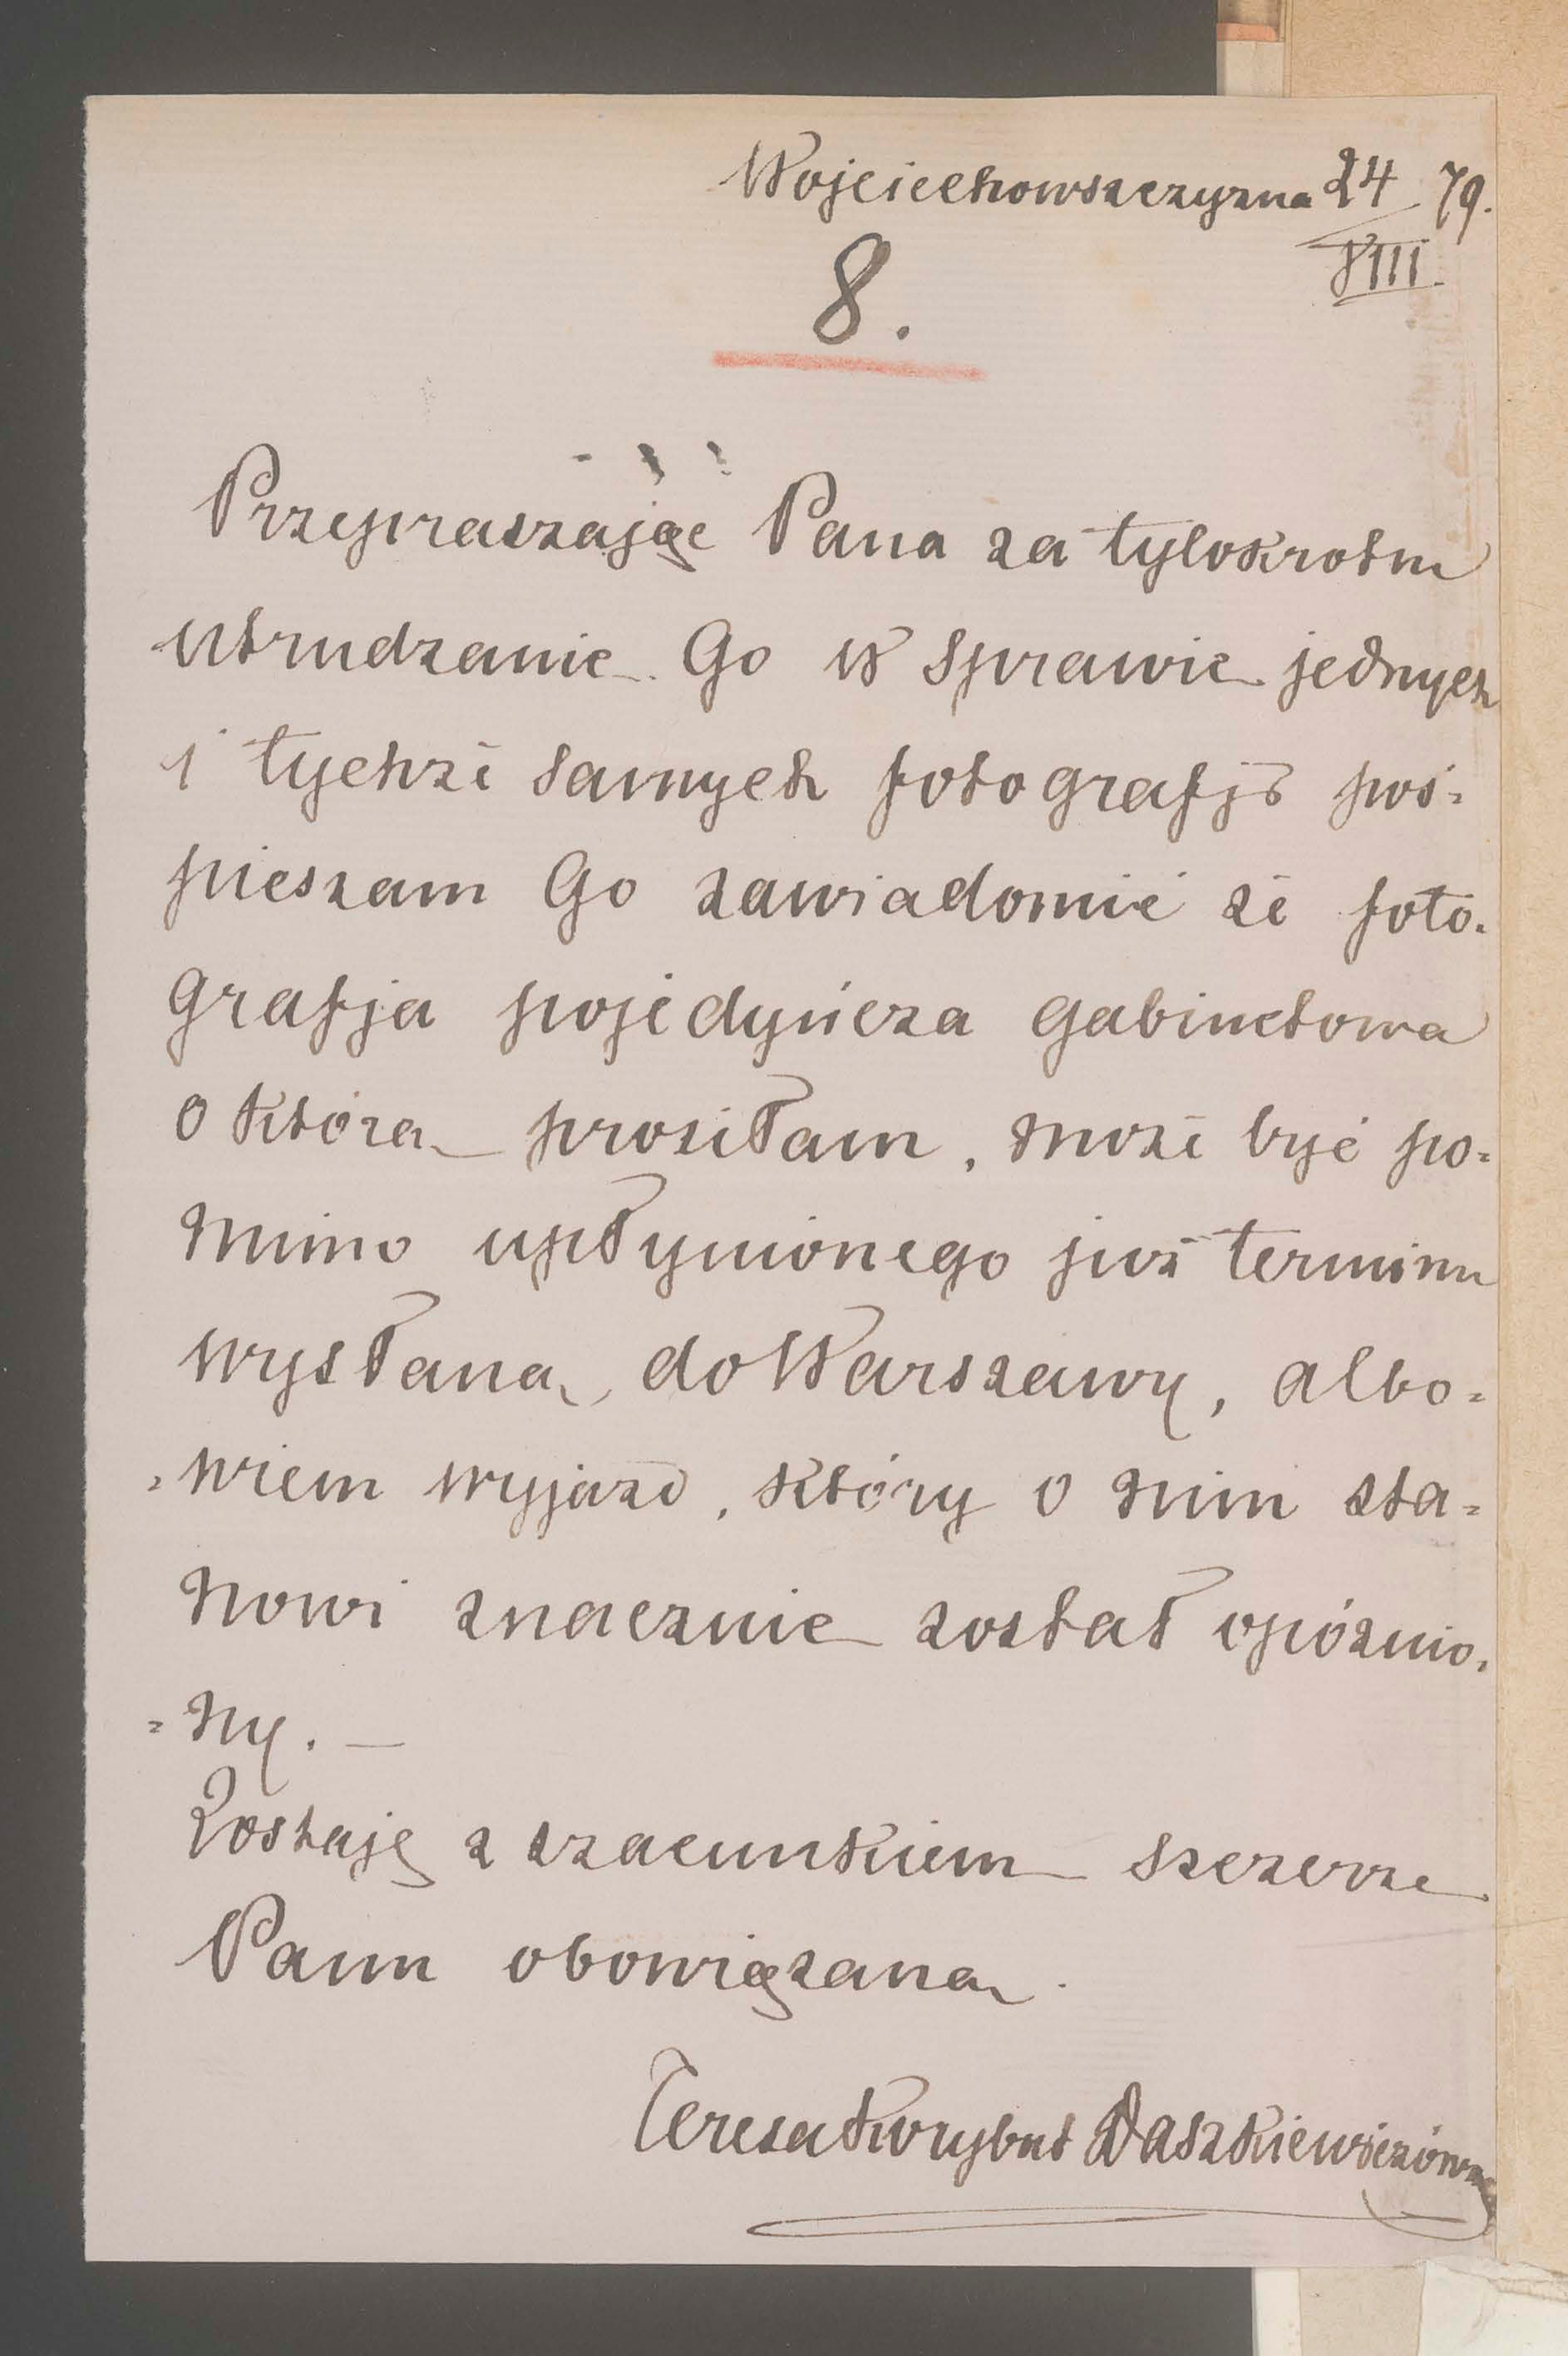 Wojciechowszczyzna 24/VIII 79.
8.
Przepraszając Pana za tylokrotne
utrudzanie Go w sprawie jednych
i tychże samych fotografji poś-
pieszam Go zawiadomić że foto-
grafja pojedyńcza gabinetowa
o która prosiłam, może być po-
mimo upłynionego już terminu
wysłana, do Warszawy, albo-
-wiem wyjazd, który o nim sta-
nowi znacznie został opóźnio-
-ny. —
Zostaję z szacunkiem szczerze
Panu obowiązana.
Teresa Korybut Daszkiewiczówna